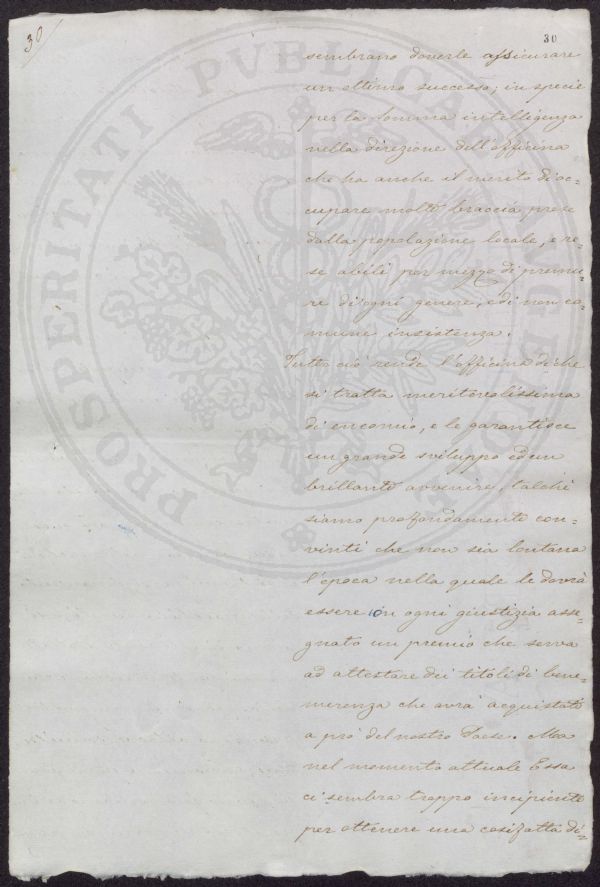 30
30
sembrano doverle assicurare
un ottimo successo; in specie
per la somma intelligenza
nella direzione dell'officina
che ha anche il merito di oc-
cupare molte braccia prese
dalla popolazione locale, e re-
se abili per mezzo di premu-
re di ogni genere, e di non co-
mune insistenza.
Tutto ciò rende l'officina di che
si tratta meritevolissima
di encomio, e le garantisce
un grande sviluppo ed un
brillante avvenire, talchè
siamo profondamente con-
vinti che non sia lontana
l'epoca nella quale le dovrà
essere in ogni giustizia asse-
gnato un premio che serva
ad attestare dei titoli di bene-
merenza che avrà acquistati
a prò del nostro Paese. Ma
nel momento attuale Essa
ci sembra troppo incipiente
per ottenere una cosifatta di-
PROSPERITATI PVBLICAE AVGENDAE